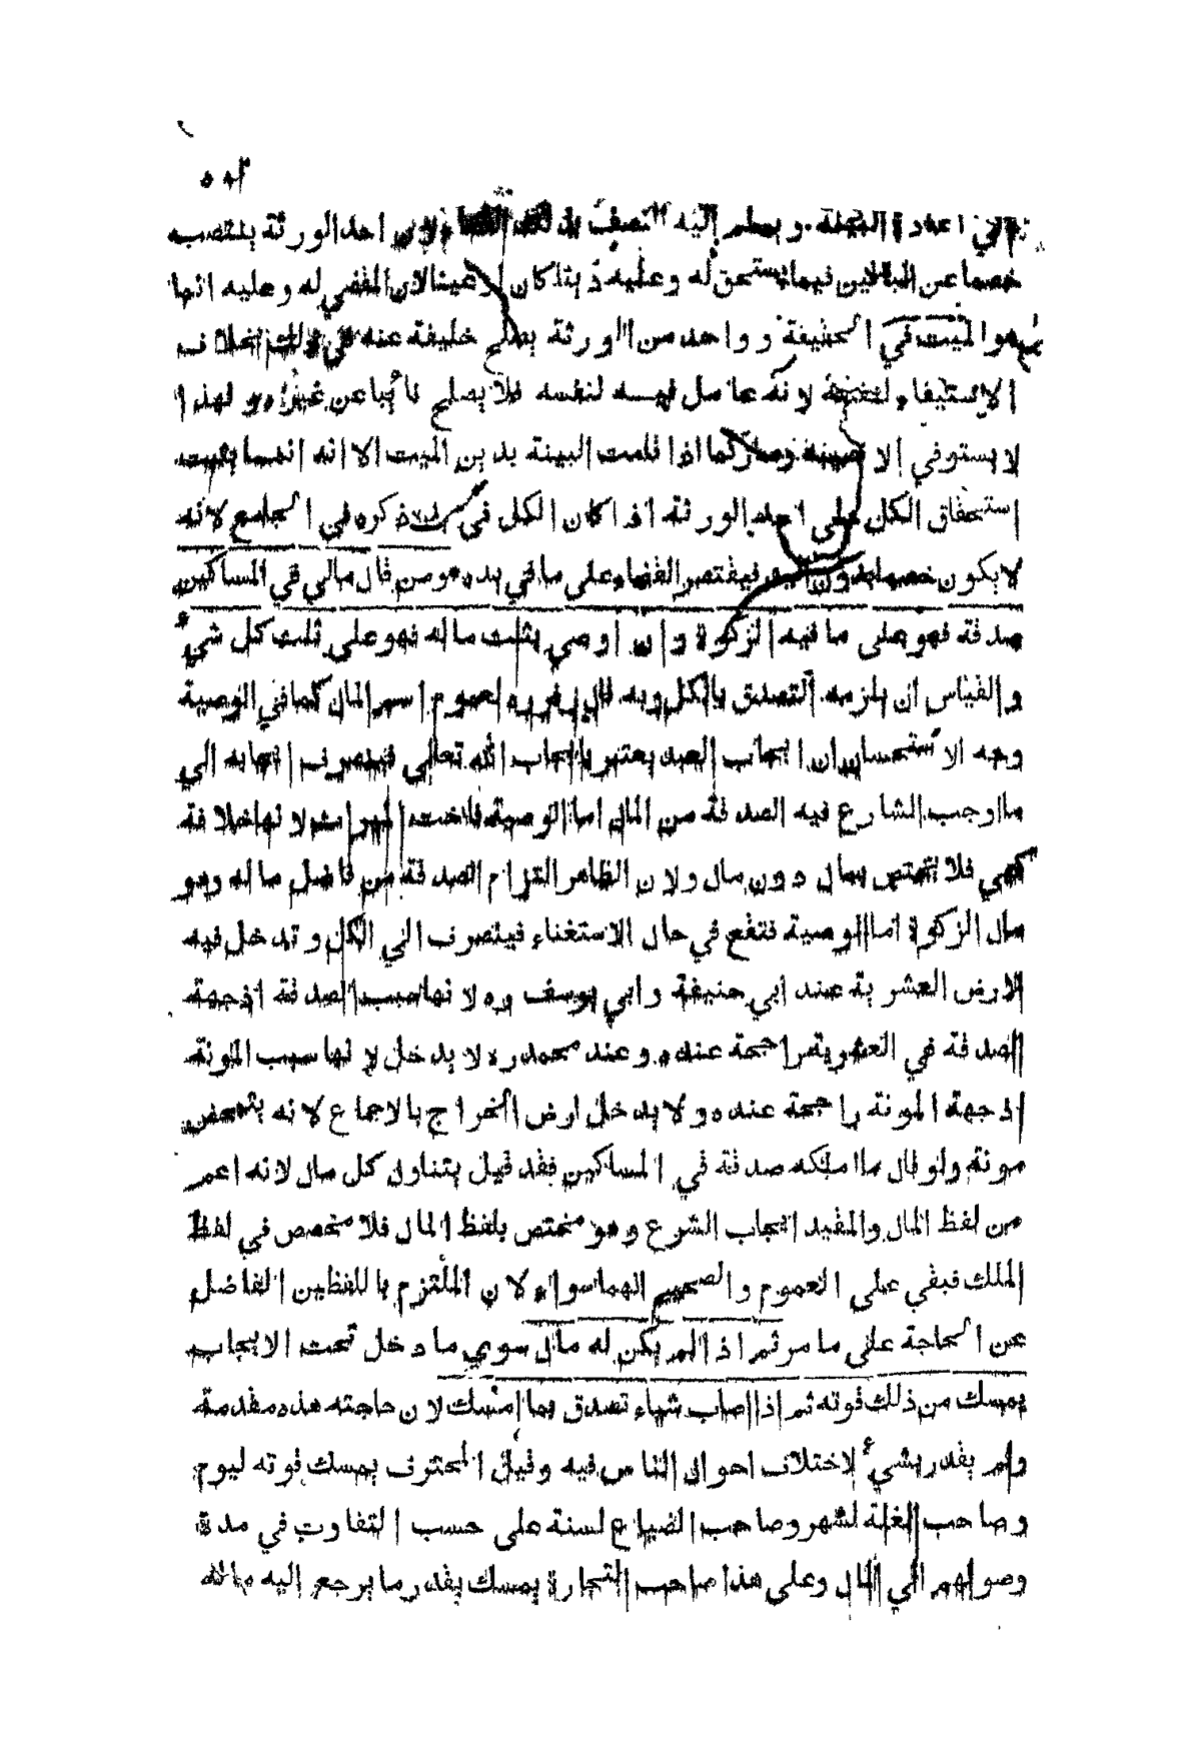 اعادة البينة ويسلم اليه النصف بذلك القضاء ولان احد الورثة ينتصب
خصما عن الباقين فيما يستحق له وعليه دينا كان او عينا لان المقضي له وعليه انما
هو الميت في الحقيقة وواحد من الورثة يصلح خليفة عنه في ذلك بخلاف
الاستيفاء لنفسه لانه عامل فيه لنفسه فلا يصلح نائبا عن غيره ولهذا
لا يستوفي الا نصيبه وصار كما اذا قامت البينة بدين الميت الا انه انما يثبت
استحقاق الكل على احد الورثة اذا كان الكل في يده ذكره في الجامع لانه
لا يكون خصما بدون اليد فيقتصر القضاء على ما في يده ومن قال مالي في المساكين
صدقة فهو على ما فيه الزكوة وان اوصي بثلث ماله فهو على ثلث كل شيء
والقياس ان يلزمه التصدق بالكل وبه قال زفر ره لعموم اسم المال كما في الوصية
وجه الاستحسان ان ايجاب العبد يعتبر بايجاب الله تعالى فينصرف ايجابه الي
ما اوجب الشارع فيه الصدقة من المال اما الوصية فاخت الميراث لا نها خلافة
كهي فلا يختص بمال دون مال ولان الظاهر التزام الصدقة من فاضل ماله وهو
مال الزكوة اما الوصية فتقع في حال الاستغناء فينصرف الي الكل وتدخل فيه
الارض العشرية عند ابي حنيفة وابي يوسف ره لانها سبب الصدقة اذ جهة
الصدقة في العشرية راجحة عنده وعند محمد ره لا يدخل لانها سبب المونة
اذ جهة المونة راجحة عنده ولا يدخل ارض الخراج بالاجماع لانه يتمحض
مونة ولو قال ما املكه صدقة في المساكين فقد قيل يتناول كل مال لانه اعم
من لفظ المال والمقيد ايجاب الشرع وهو مختص بلفظ المال فلا مخصص في لفظ
الملك فبقي على العموم والصحيح انهما سواء لان الملتزم باللفظين الفاضل
عن الحاجة على ما مر ثم اذا لم يكن له مال سوي ما دخل تحت الايجاب
يمسك من ذلك قوته ثم اذا اصاب شياء تصدق بما امسك لان حاجته هذه مقدمة
ولم يقدر بشيء لاختلاف احوال الناس فيه وقيل المحترف يمسك قوته ليوم
وصاحب الغلة لشهر وصاحب الضياع لسنة على حسب التفاوت في مدة
وصولهم الي المال وعلى هذا صاحب التجارة يمسك بقدر ما يرجع اليه ماله